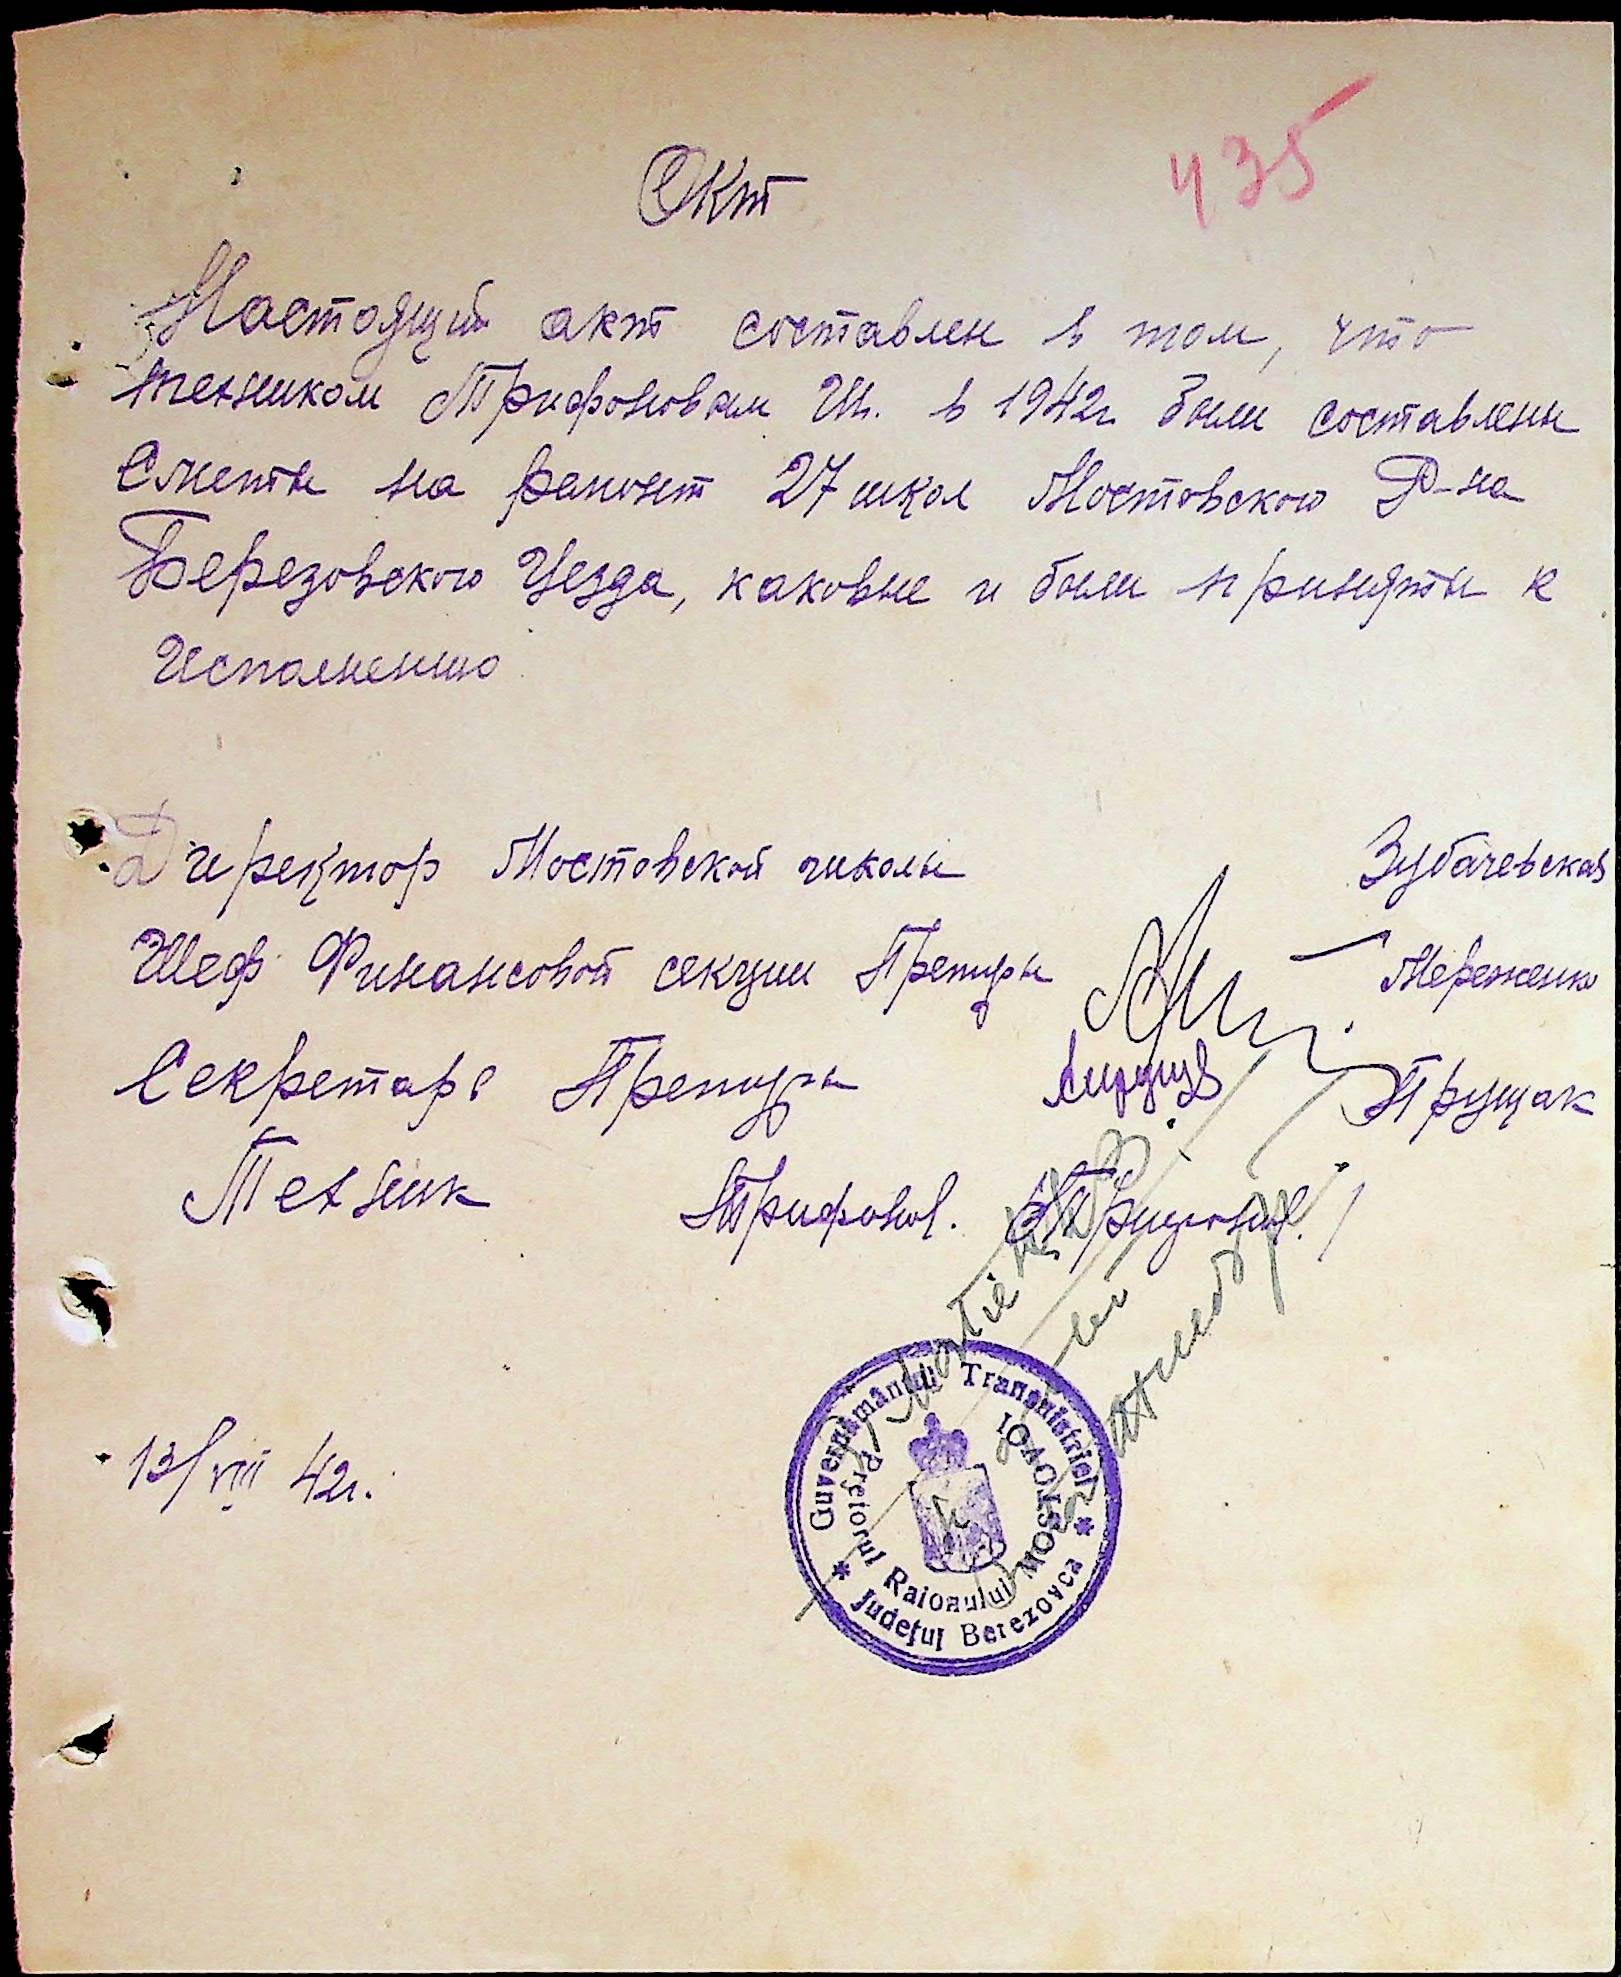 435
Окт
Настоящий акт составлен в том, что
техником Трифоновым Ш. в 1942г. были составлены
Сметы на ремонт 27 школ Мостовского Р-на
Березовского Уезда, каковые и были приняты к
Исполнению
Директор Мостовской школы Зубачевская
Шеф Финансовой секции Претуры Мереженко
Секретарь Претуры Прущак
Техник Трифонов. Трифонов.
13/VIII 42г.
Guvernământul Transnistriei
Pretorul Raionului MOSTOVOI
Județul Berezovca